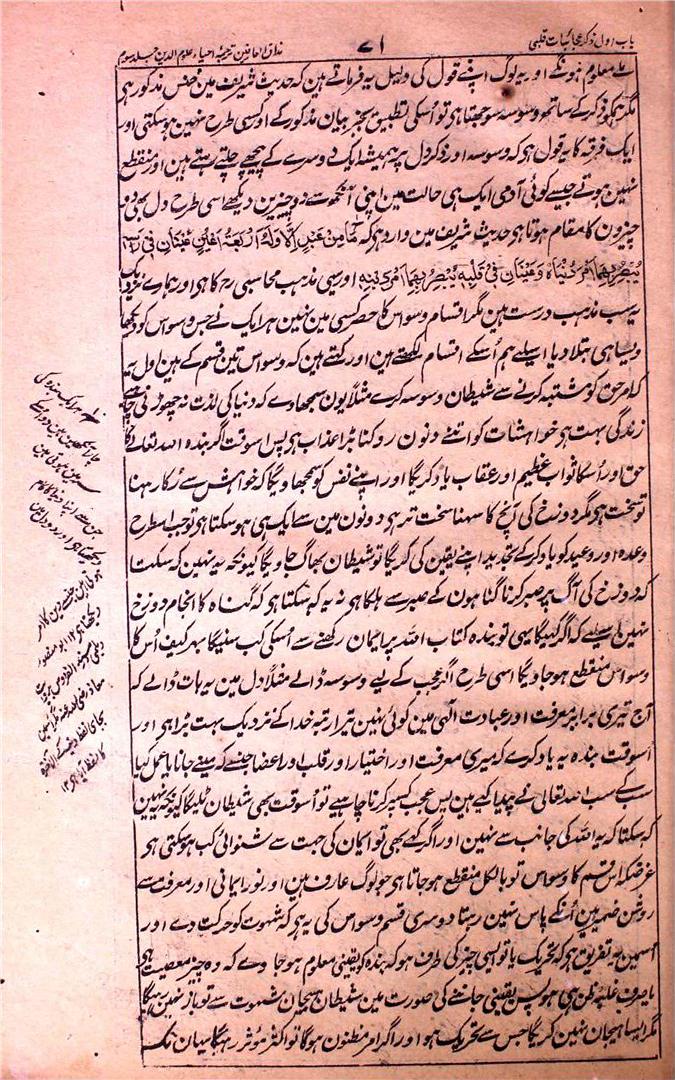 باب اول ذکر عجائبات قلبی
۷۱
مذاق العارفین ترجمۂ احیاء علوم الدین جلد سوم
معلوم ہونگے اور یہ لوگ اپنے قول کی دلیل یہ فرماتے ہین کہ حدیث شریف مین خنس مذکور ہی
مگر چونکہ ذکر کے ساتھ وسوسہ سوجھتا ہی تو اُسکی تطبیق بجز بیان مذکور کے اور کسی طرح نہین ہو سکتی اور
ایک فرقہ کا یہ قول ہی کہ وسوسہ اور ذکر دل پر ہمیشہ ایک دوسرے کے پیچھے چلتے رہتے ہین اور منقطع
نہین ہوتے جیسے کوئی آدمی ایک ہی حالت مین اپنی آنکھ سے دو چیزین دیکھے اسی طرح دل بھی دو
چیزون کا مقام ہوتا ہی حدیث شریف مین وارد ہی کہ مَا مِنْ عَبْدٍ اِلَّا وَلَهُ اَرْبَعَةُ اَعْيُنٍ عَيْنَانِ فِيْ رَأْسِهٖ
يُبْصِرُ بِهِمَا اَمْرَ دُنْيَاهُ وَعَيْنَانِ فِيْ قَلْبِهٖ يُبْصِرُ بِهِمَا اَمْرَ دِيْنِهٖ اور یہی مذہب محاسبی رح کا ہی اور ہمارے نزدیک
یہ سب مذہب درست ہین مگر اقسام وسواس کا حصر کسی مین نہین ہر ایک نے جس وسواس کو دیکھا
ویسا ہی بتلا دیا اسلیے ہم اُسکے اقسام لکھتے ہین اور کہتے ہین کہ وسواس تین قسم کے ہین اول یہ
کہ امر حق کو مشتبہ کرنے سے شیطان وسوسہ کرے مثلاً یون سمجھاوے کہ دنیا کی لذت نہ چھوڑنی چاہیے
زندگی بہت ہی خواہشات کو اتنے دنون روکنا بڑا عذاب ہی پس اسوقت اگر بندہ اللہ تعالے کا
حق اور اُسکا ثواب عظیم اور عقاب یاد کریگا اور اپنے نفس کو سمجھاویگا کہ خواہش سے رُکا رہنا
تو سخت ہی مگر دوزخ کی آنچ کا سہنا سخت تر ہی دونون مین سے ایک ہی ہو سکتا ہی تو جب اسطرح
وعدہ اور وعید کو یاد کر کے تجدید اپنے یقین کی کریگا تو شیطان بھاگ جاویگا کیونکہ یہ نہین کہہ سکتا
کہ دوزخ کی آگ پر صبر کرنا گناہون کے صبر سے ہلکا ہی نہ یہ کہہ سکتا ہی کہ گناہ کا انجام دوزخ
نہین اسلیے کہ اگر کہیگا بھی تو بندہ کتاب اللہ پر ایمان رکھنے سے اُسکی کب سنیگا بہر کیف اُس کا
وسواس منقطع ہو جاویگا اسی طرح اگر عجب کے لیے وسوسہ ڈالے مثلاً دل مین یہ بات ڈالے کہ
آج تیری برابر معرفت اور عبادت الٰہی مین کوئی نہین تیرا رتبہ خدا کے نزدیک بہت بڑا ہی اور
اسوقت بندہ یہ یاد کرے کہ میری معرفت اور اختیار اور قلب اور اعضا جنسے کہ مینے جانا یا عمل کیا
سب کے سب اللہ تعالی نے پیدا کیے ہین پس عجب کسپر کرنا چاہیے تو اُسوقت بھی شیطان ٹلیگا کیونکہ یہ نہین
کہہ سکتا کہ یہ اللہ کی جانب سے نہین اور اگر کہے بھی تو ایمان کی جہت سے شنوائی کب ہو سکتی ہی
غرضکہ اس قسم کا وسواس تو بالکل منقطع ہو جاتا ہی جو لوگ عارف ہین اور نور ایمانی اور معرفت سے
روشن ضمیر ہین اُنکے پاس نہین رہتا دوسری قسم وسواس کی یہ ہی کہ شہوت کو حرکت دے اور
اسمین یہ تفریق ہی کہ تحریک یا تو ایسی چیز کی طرف ہو کہ بندہ کو یقینی معلوم ہو جاوے کہ وہ چیز معصیت ہی
یا صرف غلبۂ ظن ہی ہو پس یقینی جاننے کی صورت مین شیطان ہیجان شہوت سے تو باز نہین رہیگا
مگر ایسا ہیجان نہین کریگا جس سے تحریک ہو اور اگر امر مظنون ہوگا تو اکثر مؤثر رہیگا یہان تک
ہر ایک بندہ کی
چار آنکھین ہین دو اسکے
سر مین ہوتی ہین
جن سے اپنا دنیا کا کام
دیکھتا ہی اور دو دل مین
ہوتی ہین جنسے دین کا امر
دیکھتا ہی ۱۲ ابو منصور
دیلمی مسند الفردوس بروایت
معاذ رضی اللہ عنہ مگر اسمین
بجای لفظ دینہ کے الآخرۃ
کا لفظ آیا ہی ۱۲